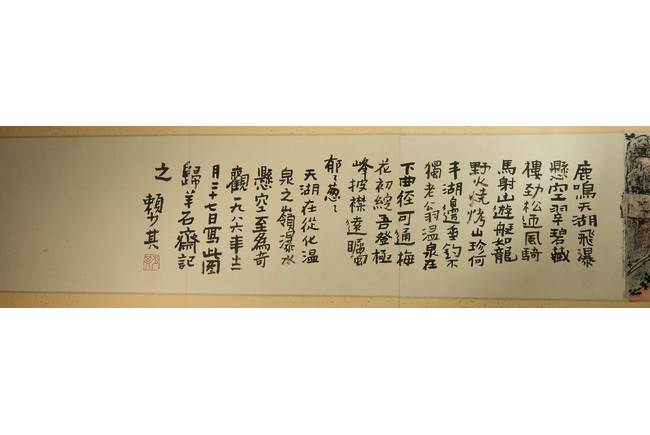 鹿鳴天湖飛瀑
懸空翠碧藏
樓勁松迎風騎
馬射山遊艇如龍
野火燒烤山珍何
丰湖邊垂釣不
獨老翁溫泉在
下曲徑可通梅
花初綻吾登極
峰披襟遠矚
郁〻蔥〻
天湖在從化溫
泉之嶺瀑水
懸空至為奇
觀一九八六年十二
月二十七日寫此圖
歸羊石齋記
之 賴少其